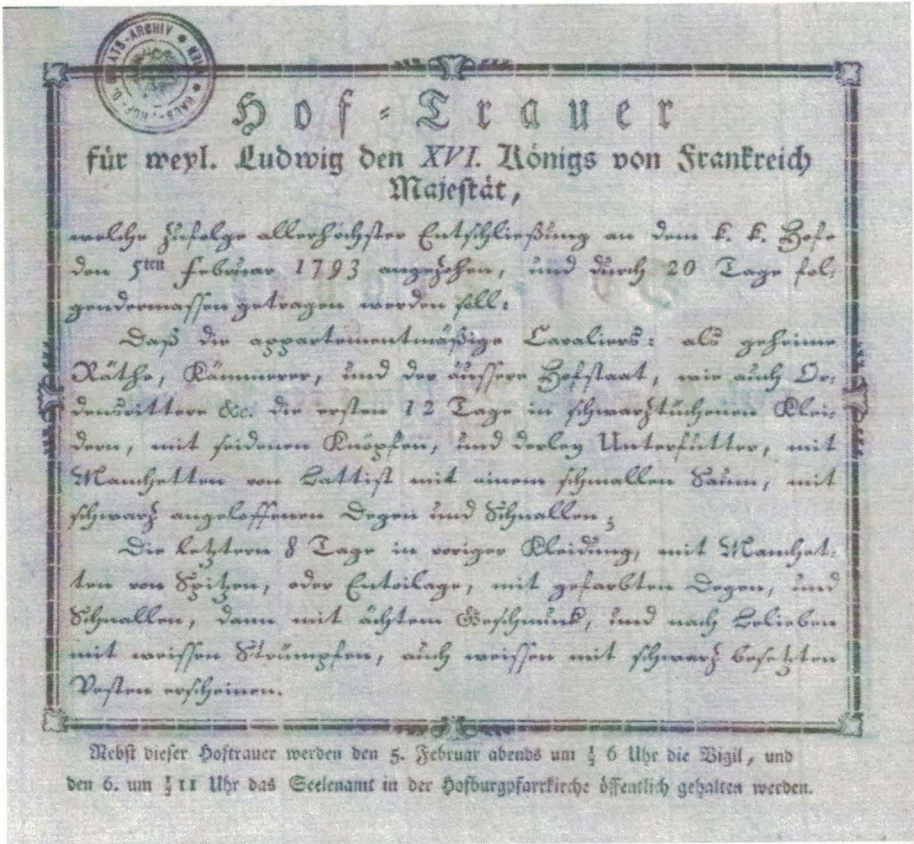 HAUS-, HOF- U. STAATS-ARCHIV * WIEN *
Hof-Trauer
für weyl. Ludwig den XVI. Königs von Frankreich
Majestät,
welche zufolge allerhöchster Entschließung an dem k. k. Hofe
den 5ten Februar 1793 angezohen, und durch 20 Tage fol-
gendermassen getragen werden soll:
Daß die appartementmäßige Cavaliers: als geheime
Räthe, Kämmerer, und der äussere Hofstaat, wie auch Or-
densrittere &c. die ersten 12 Tage in schwarztuchenen Klei-
dern, mit seidenen Knöpfen, und derley Unterfutter, mit
Manchetten von Battist mit einem schmallen Saum, mit
schwarz angeloffenen Degen und Schnallen;
Die letztern 8 Tage in voriger Kleidung, mit Manchet-
ten von Spitzen, oder Entoilage, mit gefärbten Degen, und
Schnallen, dann mit ächtem Geschmuck, und nach Belieben
mit weissen Strümpfen, auch weissen mit schwarz besetzten
Vesten erscheinen.
Nebst dieser Hoftrauer werden den 5. Februar abends um ½ 6 Uhr die Vigil, und
den 6. um ½ 11 Uhr das Seelenamt in der Hofburgpfarrkirche öffentlich gehalten werden.